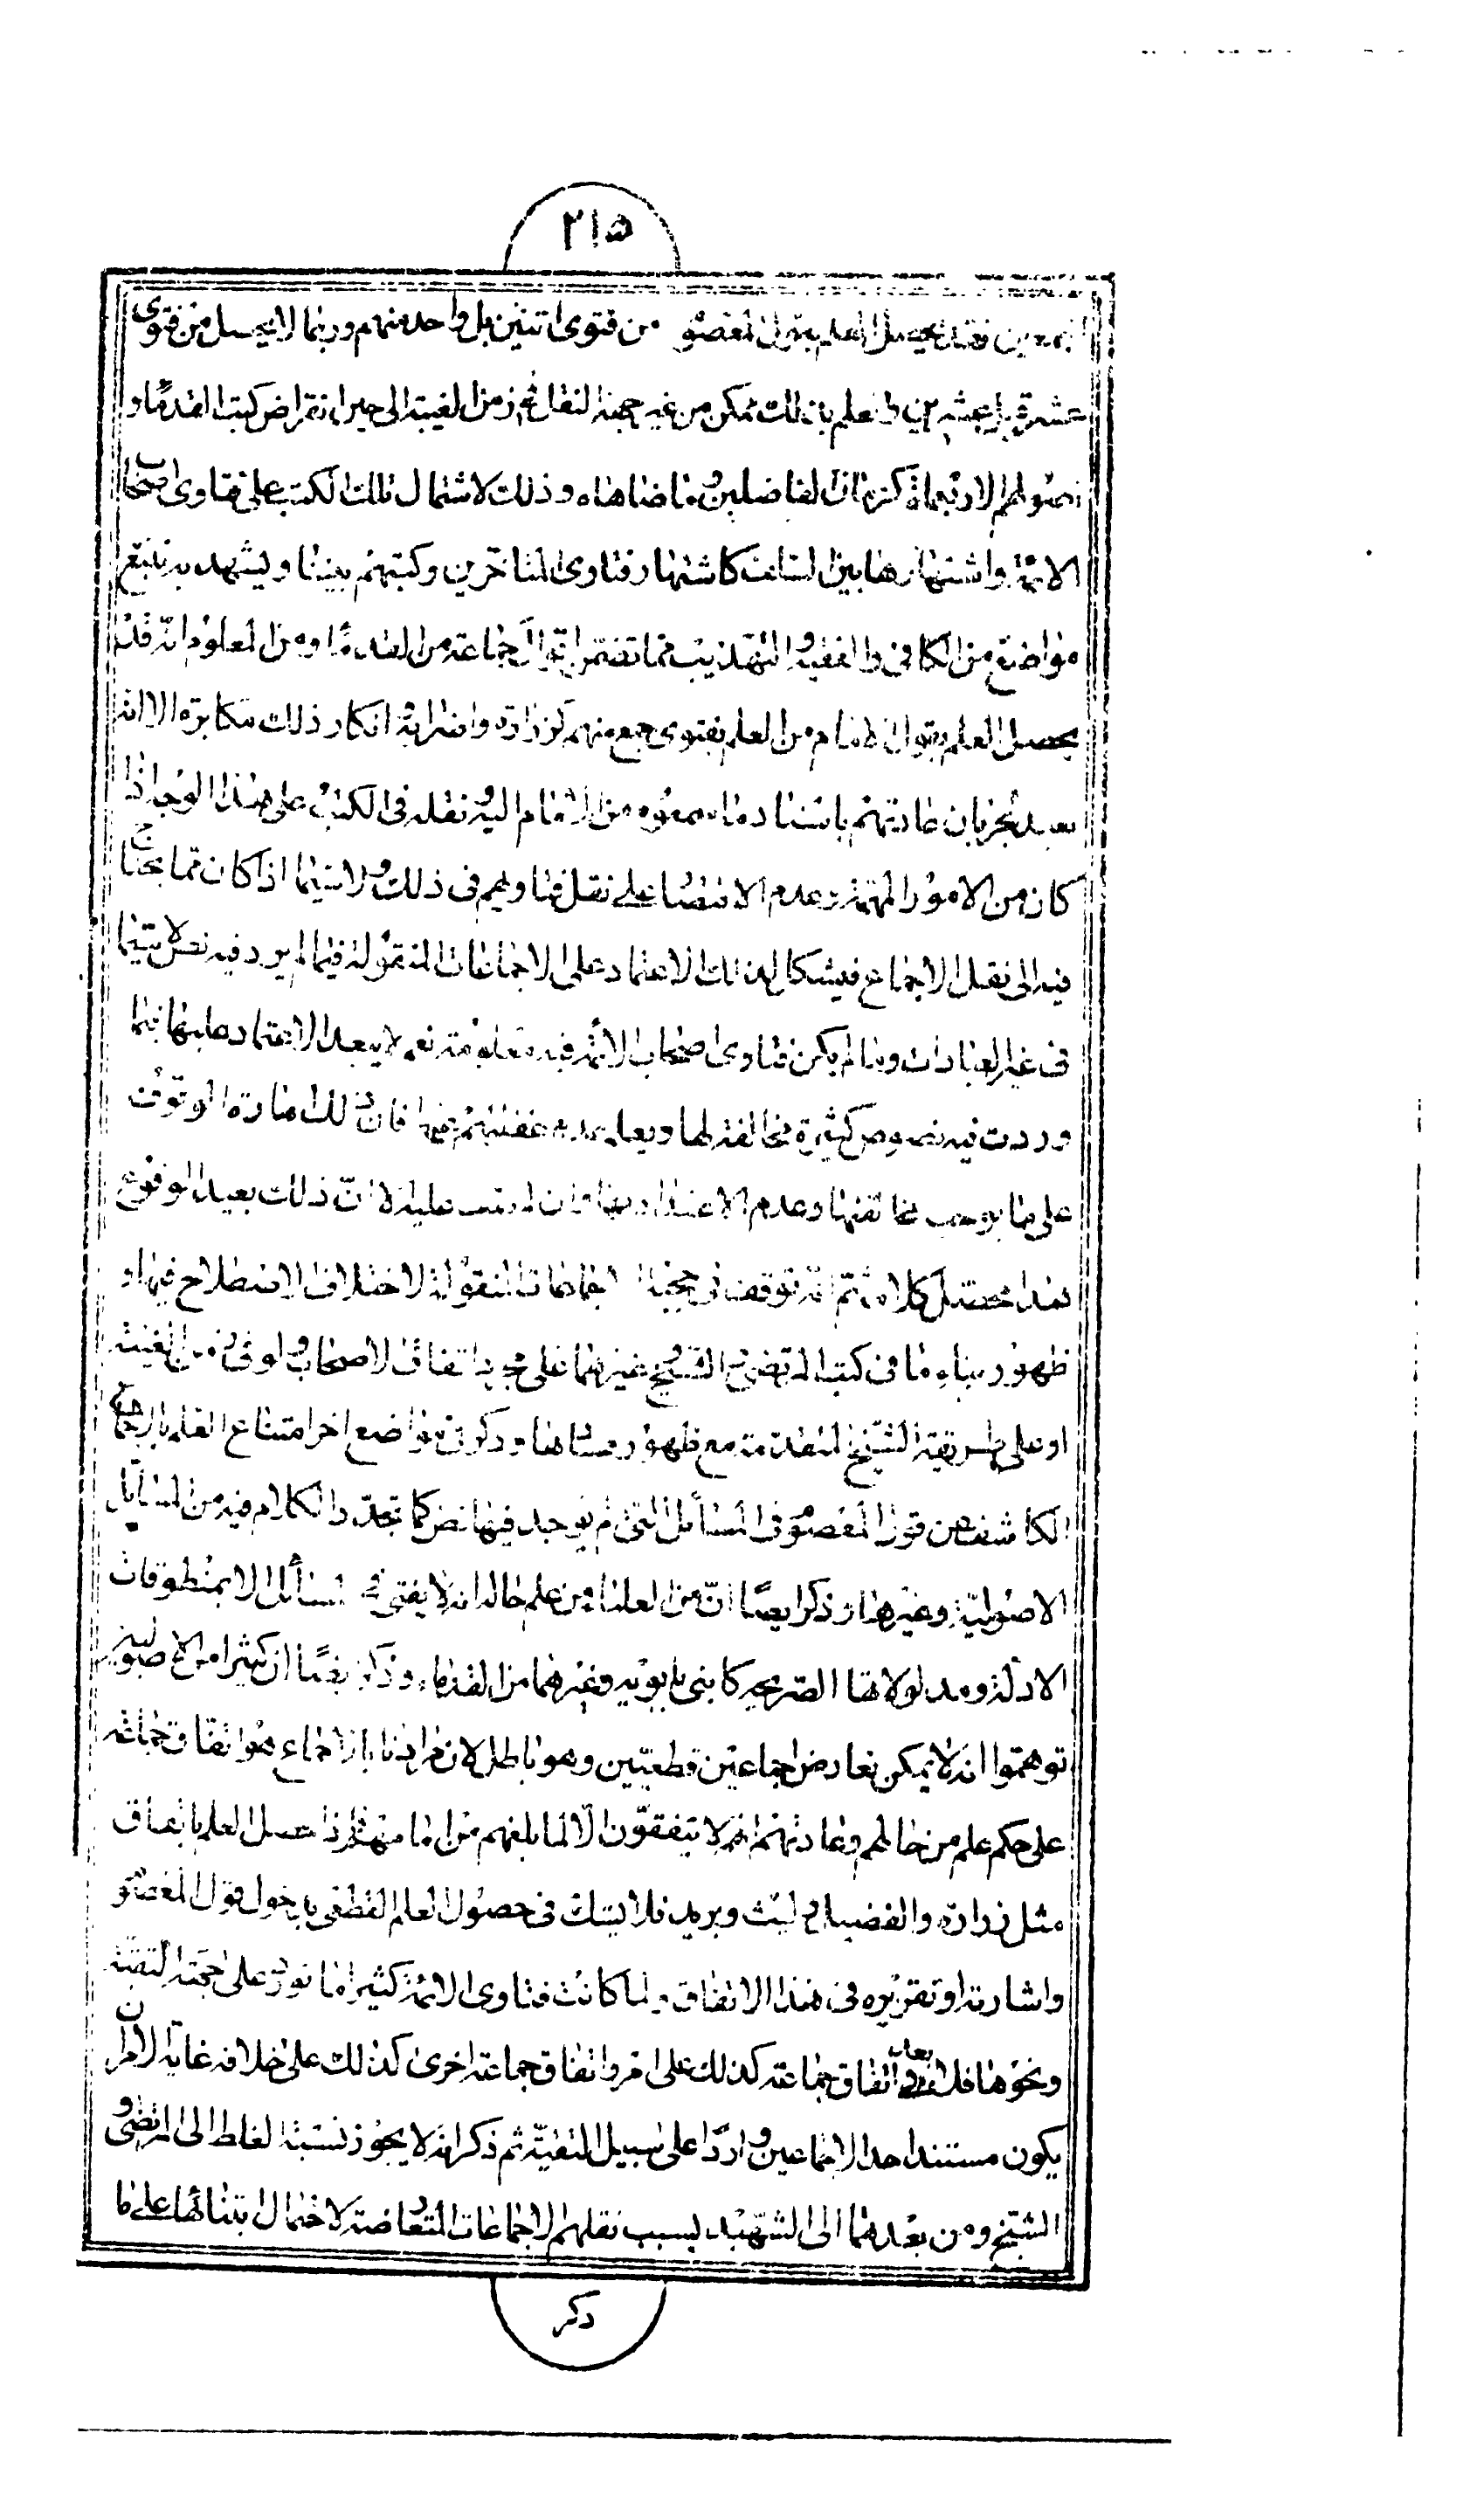 ٢١٥
فقد يحصل العلم بقول المعصو من فتوى اثنين بل واحد منهم وربما لا يحصل من فتوى
عشرة بل عشرين والعلم بذلك ممكن من غير جهة النقل في زمن الغيبة الى حين انقراض كتب القدماء و
اصولهم الاربعمائة كزمان الفاضلين وما ضاهاه وذلك لاشتمال تلك الكتب على فتاوى اصحاب
الائمة واشتهارها بين السلف كاشتهار فتاوى المتاخرين وكتبهم بيننا ويشهد به تتبع
مواضع من الكافى والفقيه والتهذيب مما تضمن اقوال جماعة من القدماء ومن المعلوم انه قد
يحصل العلم بقول الامام من العلم بفتوى جمع منهم كزرارة واضرابه انكار ذلك مكابرة الا انه
بعد جريان عادتهم باسناد ما سمعوه من الامام اليه ونقله فى الكتب على هذا الوجه اذا
كان من الامور المهمة وعدم الاقتصا على نقل فتاويهم فى ذلك ولا سيما اذا كان مما يحتاج
فيه الى نقل الاجماع فيشكل لذلك الاعتماد على الاجماعات المنقولة فيما لم يرد فيه نص لا سيما
فى غير العبادات وما لم يكن فتاوى اصحاب الائمة فيه معلومة نعم لا يبعد الاعتماد عليها فيما
وردت فيه نصوص كثيرة مخالفة لها ويعلم عدم غفلتهم عنها فان ذلك امارة الوقوف
على ما يوجب مخالفتها وعدم الاعتداد بها وان لم نقف عليه لان ذلك بعيد الوقوع
هذا محصل كلامه ثم انه توقف فى حجية الاجماعات المنقولة لاختلاف الاصطلاح فيها و
ظهور بناء ما فى كتب المرتضى والشيخ وغيرهما على مجرد اتفاق الاصحاب ولو فى زمن الغيبة
او على طريقة الشيخ المتقدمة مع ظهور فسادها وذكر فى مواضع اخر امتناع العلم بالاجماع
الكاشف عن قول المعصو فى المسائل التى لم يوجد فيها نص كما تجدد الكلام فيه من المسائل
الاصولية وغيرها وذكر ايضا ان من العلماء من علم حاله انه لا يفتى فى المسائل الا بمنطوقات
الادلة ومدلولاتها الصريحه كابنى بابويه وغيرهما من القدماء وذكر ايضا ان كثيرا من الاصوليين
توهموا انه لا يمكن تعارض اجماعين قطعيين وهو باطل لان مرادنا بالاجماع هو اتفاق جماعة
على حكم علم من حالهم وعادتهم انهم لا يتفقون الا لما بلغهم من امامهم فاذا حصل العلم باتفاق
مثل زرارة والفضيل وليث وبريد فلا يشك فى حصول العلم القطعى بدخول قول المعصو
واشارته او تقريره فى هذا الاتفاق ولما كانت فتاوى الائمة كثيرا ما نزلت على جهة التقية
ونحوها فلا بعد فى اتفاق جماعة كذلك على امر واتفاق جماعة اخرى كذلك على خلافه غاية الامر ان
يكون مستند احد الاجماعين واردا على سبيل التقية ثم ذكر انه لا يجوز نسبة الغلط الى المرتضى و
الشيخ ومن بعدهما الى الشهيد بسبب نقلهم الاجماعات المتعارضة لاحتمال ابتنائها على ما
ذكر